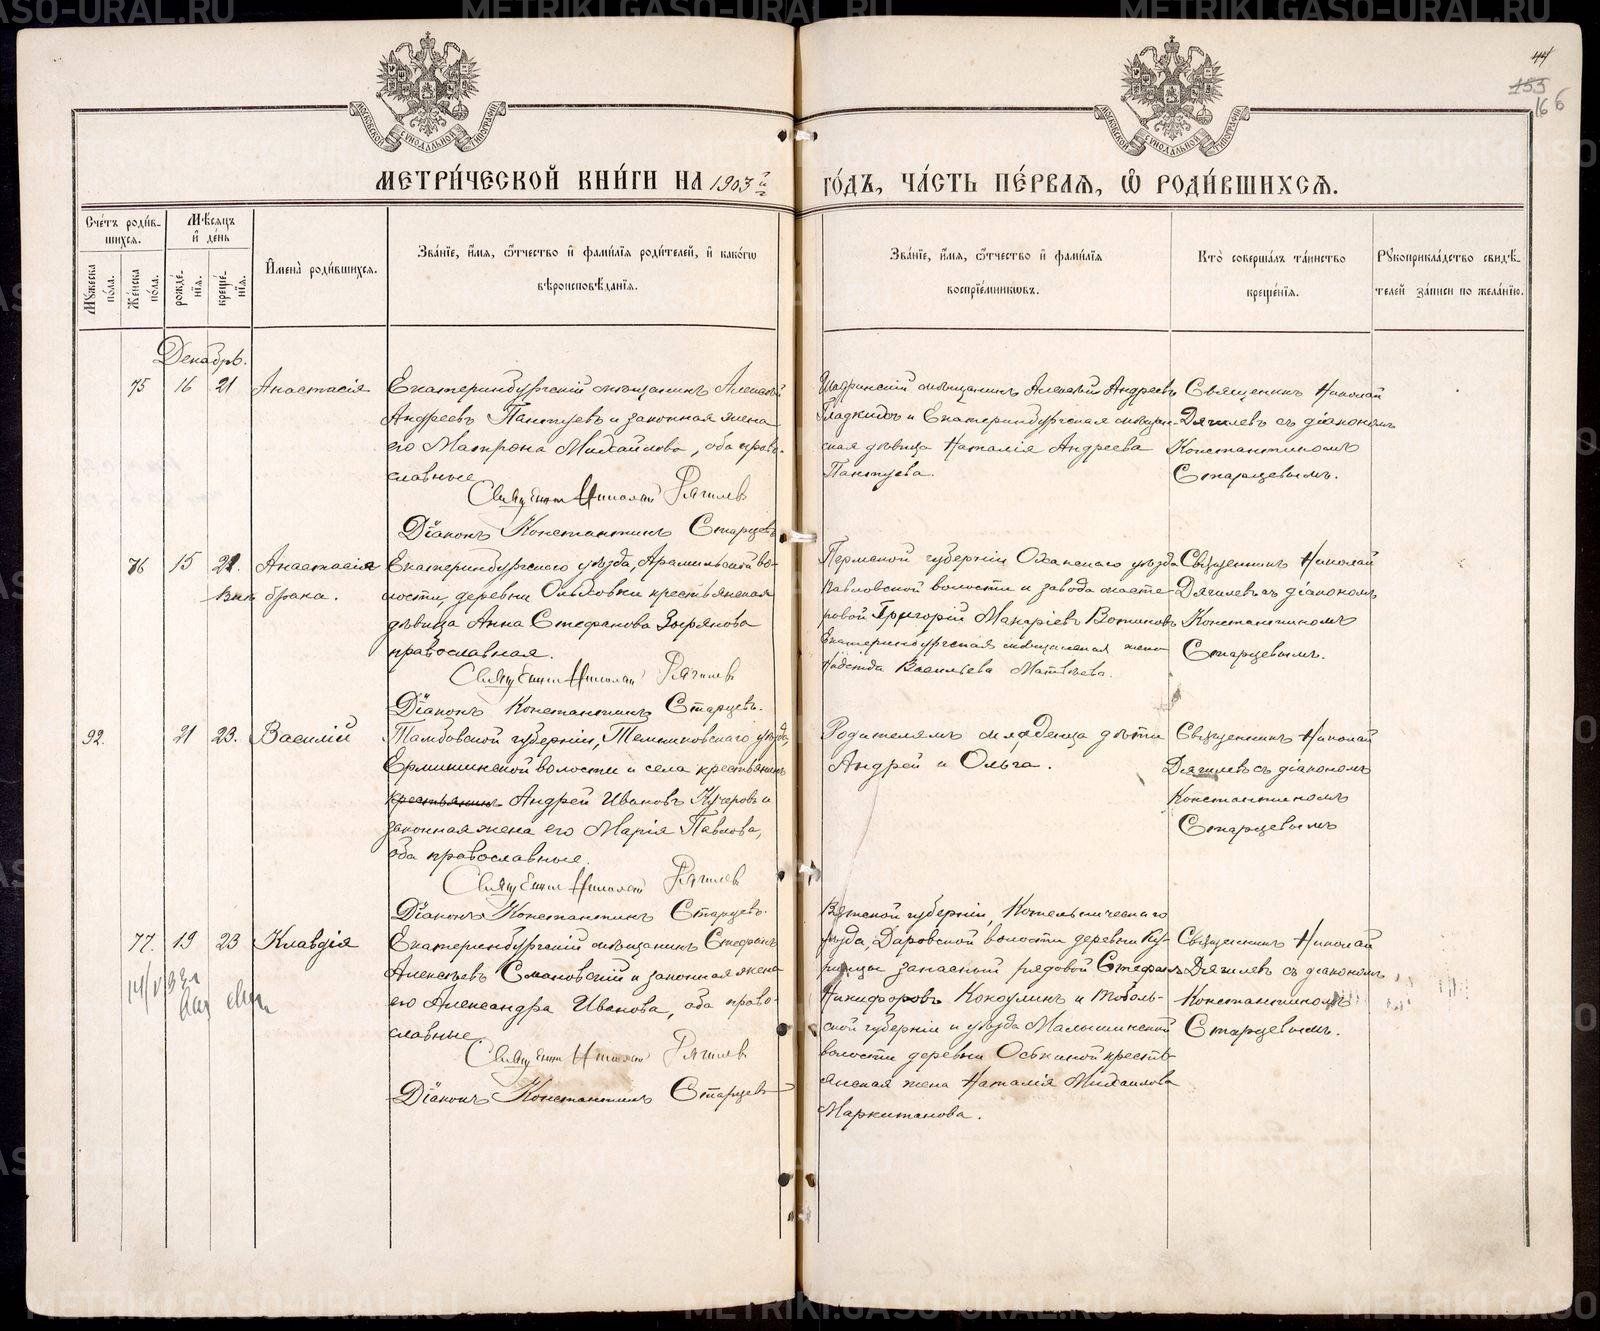 44
155
166
МЕТРИ́ЧЕСКОЙ КНИ́ГИ НА 1903й
ГО́ДЪ, ЧА́СТЬ ПЕ́РВАЯ, Ѡ҆ РОДИ́ВШИХСЯ.
Сче́тъ роди́вшихся.
Мꙋ́жеска по́ла.
Же́нска по́ла.
Мѣ́сяцъ и҆ де́нь
рожде́нїѧ.
креще́нїѧ.
И҆мена̀ роди́вшихсѧ.
Зва́нїе, и҆́мѧ, ѻ҆́тчество и҆ фами́лїѧ роди́телей, и҆ како́гѡ
вѣроисповѣ́данїѧ.
Зва́нїе, и҆́мѧ, ѻ҆́тчество и҆ фами́лїѧ
воспрїе́мникѡвъ.
Кто̀ соверша́лъ та́инство
креще́нїѧ.
Рꙋкоприкла́дство свидѣ́-
телей за́писи по жела́нїю.
Декабрь.
75 16 21 Анастасія
Екатеринбургскій мѣщанинъ Алексѣй
Андреевъ Пантуевъ и законная жена
его Матрона Михайлова, оба право-
славные
Священникъ Николай Дягилевъ
Діаконъ Константинъ Старцевъ
Шадринскій мѣщанинъ Алексѣй Андреевъ
Гладкихъ и Екатеринбургская мѣщан-
ская дѣвица Наталія Андреева
Пантуева.
Священникъ Николай
Дягилевъ съ діакономъ
Константиномъ
Старцевымъ.
76 15 21. Анастасія
Внѣ брака.
Екатеринбургскаго уѣзда, Арамильской во-
лости, деревни Ольховки крестьянская
дѣвица Анна Стефанова Зырянова
православная.
Священникъ Николай Дягилевъ
Діаконъ Константинъ Старцевъ.
Пермской губерніи Оханскаго уѣзда
Павловской волости и завода масте-
ровой Григорій Макаріевъ Вотиновъ
Екатеринбургская мѣщанская жена
Васильева Матвѣева.
Священникъ Николай
Дягилевъ съ діакономъ
Константиномъ
Старцевымъ.
92. 21 23. Василій
Тамбовской губерніи, Темниковскаго уѣзда,
Ермишинской волости и села крестьянинъ
крестьянинъ Андрей Ивановъ Кучеровъ и
законная жена его Марія Павлова,
оба православные.
Священникъ Николай Дягилевъ
Діаконъ Константинъ Старцевъ.
Родителямъ младенца дѣти
Андрей и Ольга.
Священникъ Николай
Дягилевъ съ діакономъ
Константиномъ
Старцевымъ
77. 19 23 Клавдія
Екатеринбургскій мѣщанинъ Стефанъ
Алексѣевъ Смановскій и законная жена
его Александра Иванова, оба право-
славные
Священникъ Николай Дягилевъ
Діаконъ Константинъ Старцевъ
Вятской губерніи, Котельническаго
уѣзда, Даровской волости деревни Ку-
рицы запасный рядовой Стефанъ
Никифоровъ Кокоулинъ и Тоболь-
ской губерніи и уѣзда Малышинской
волости деревни Оськиной кресть-
янская жена Наталія Михаилова
Маркитанова.
Священникъ Николай
Дягилевъ съ діакономъ
Константиномъ
Старцевымъ.